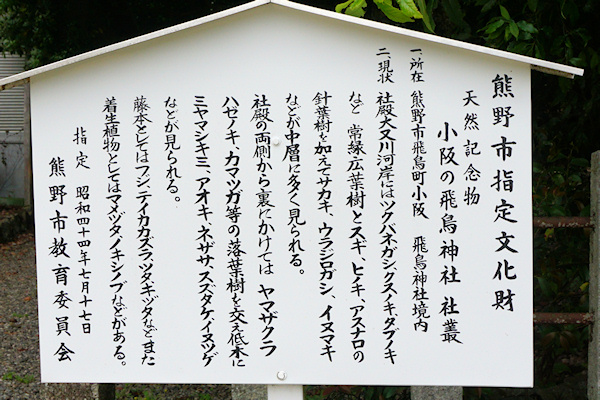 熊野市指定文化財
天然記念物
小阪の飛鳥神社 社叢
一、所在 熊野市飛鳥町小阪 飛鳥神社境内
二、現状 社殿大又川河岸にはツクバネガシ、クスノキ、タブノキ
など 常緑広葉樹とスギ、ヒノキ、アスナロの
針葉樹を加えてサカキ、ウラジロガシ、イヌマキ
などが中層に多く見られる。
社殿の両側から裏にかけては ヤマザクラ
ハゼノキ、カマツガ等の落葉樹を交え低木に
ミヤマシキミ、アオキ、ネザサ、スズタケ、イヌツゲ
などが見られる。
藤本としてはフジ、テイカカズラ、ツタ、キヅタなどまた
着生植物としてはマメヅタ、ノキシノブなどがある。
指定 昭和四十四年七月十七日
熊野市教育委員会